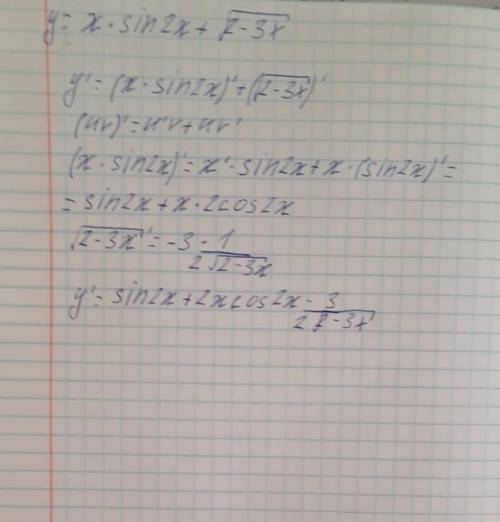 y = x · sin2x + √(2-3x)
y' = (x · sin2x)' + (√(2-3x))'
(uv)' = u'v + uv'
(x · sin2x)' = x' · sin2x + x · (sin2x)' =
= sin2x + x · 2cos2x
√(2-3x)' = -3 · 1/(2√(2-3x))
y' = sin2x + 2xcos2x - 3/(2√(2-3x))